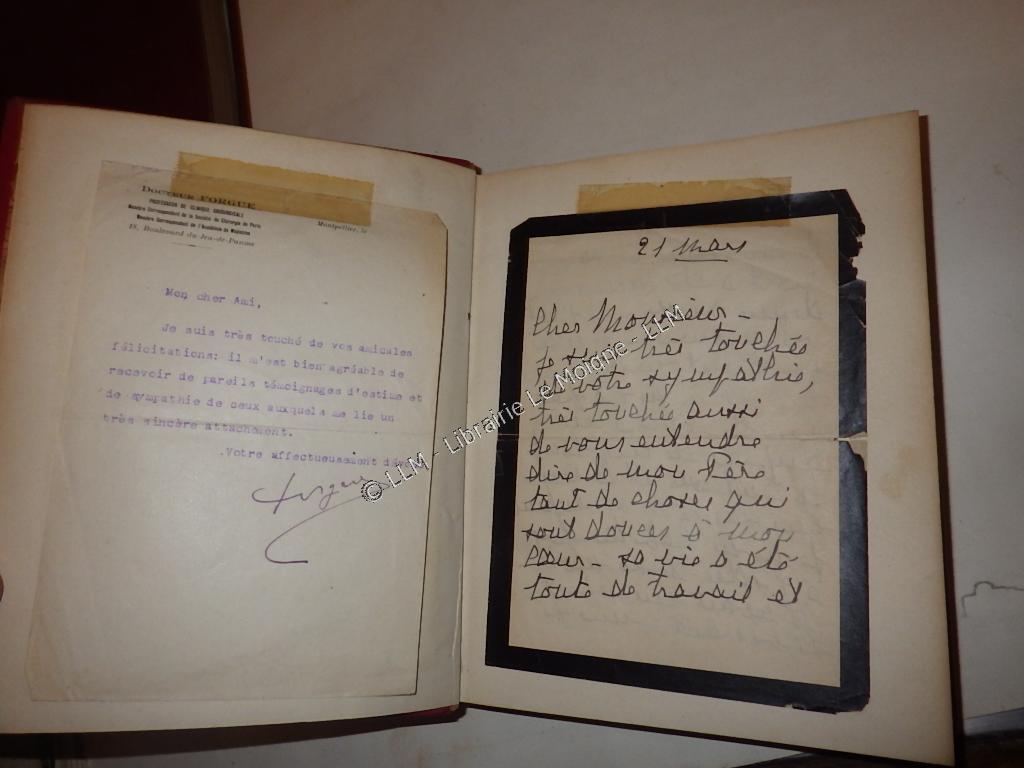 DOCTEUR FORGUE
PROFESSEUR DE CLINIQUE CHIRURGICALE
Membre Correspondant de la Société de Chirurgie de Paris
Membre Correspondant de l'Académie de Médecine
18, Boulevard du Jeu-de-Paume
Montpellier, le
Mon cher Ami,
Je suis très touché de vos amicales
félicitations; il m'est bien agréable de
recevoir de pareils témoignages d'estime et
de sympathie de ceux auxquels me lie un
très sincère attachement.
Votre affectueusement
Forgue
21 Mars
Cher Monsieur -
je suis très touchée
de votre sympathie,
très touchée aussi
de vous entendre
dire de mon Père
tant de choses qui
sont douces à mon
cœur - sa vie a été
toute de travail et
© LLM - Librairie Le Moigne - LLM